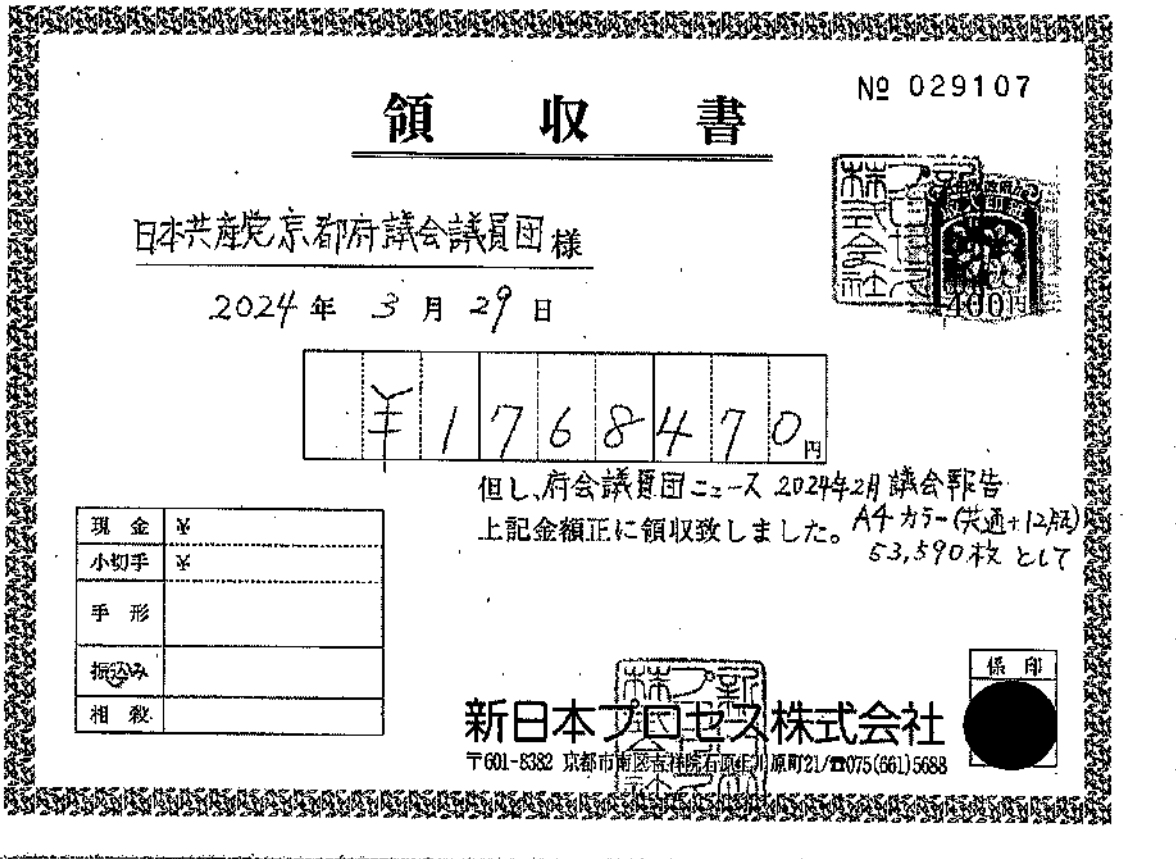 № 029107
領収書
日本共産党京都府議会議員団 様
2024年 3月 29日
¥1768470円
但し、府会議員団ニュース 2024年2月議会報告
上記金額正に領収致しました。 A4カラー(共通+12版)
53,590枚 として
現金 ¥
小切手 ¥
手形
振込み
相殺
係印
400円
新日本プロセス株式会社
〒601-8382 京都市南区吉祥院石原 原町21/☎075(661)5688